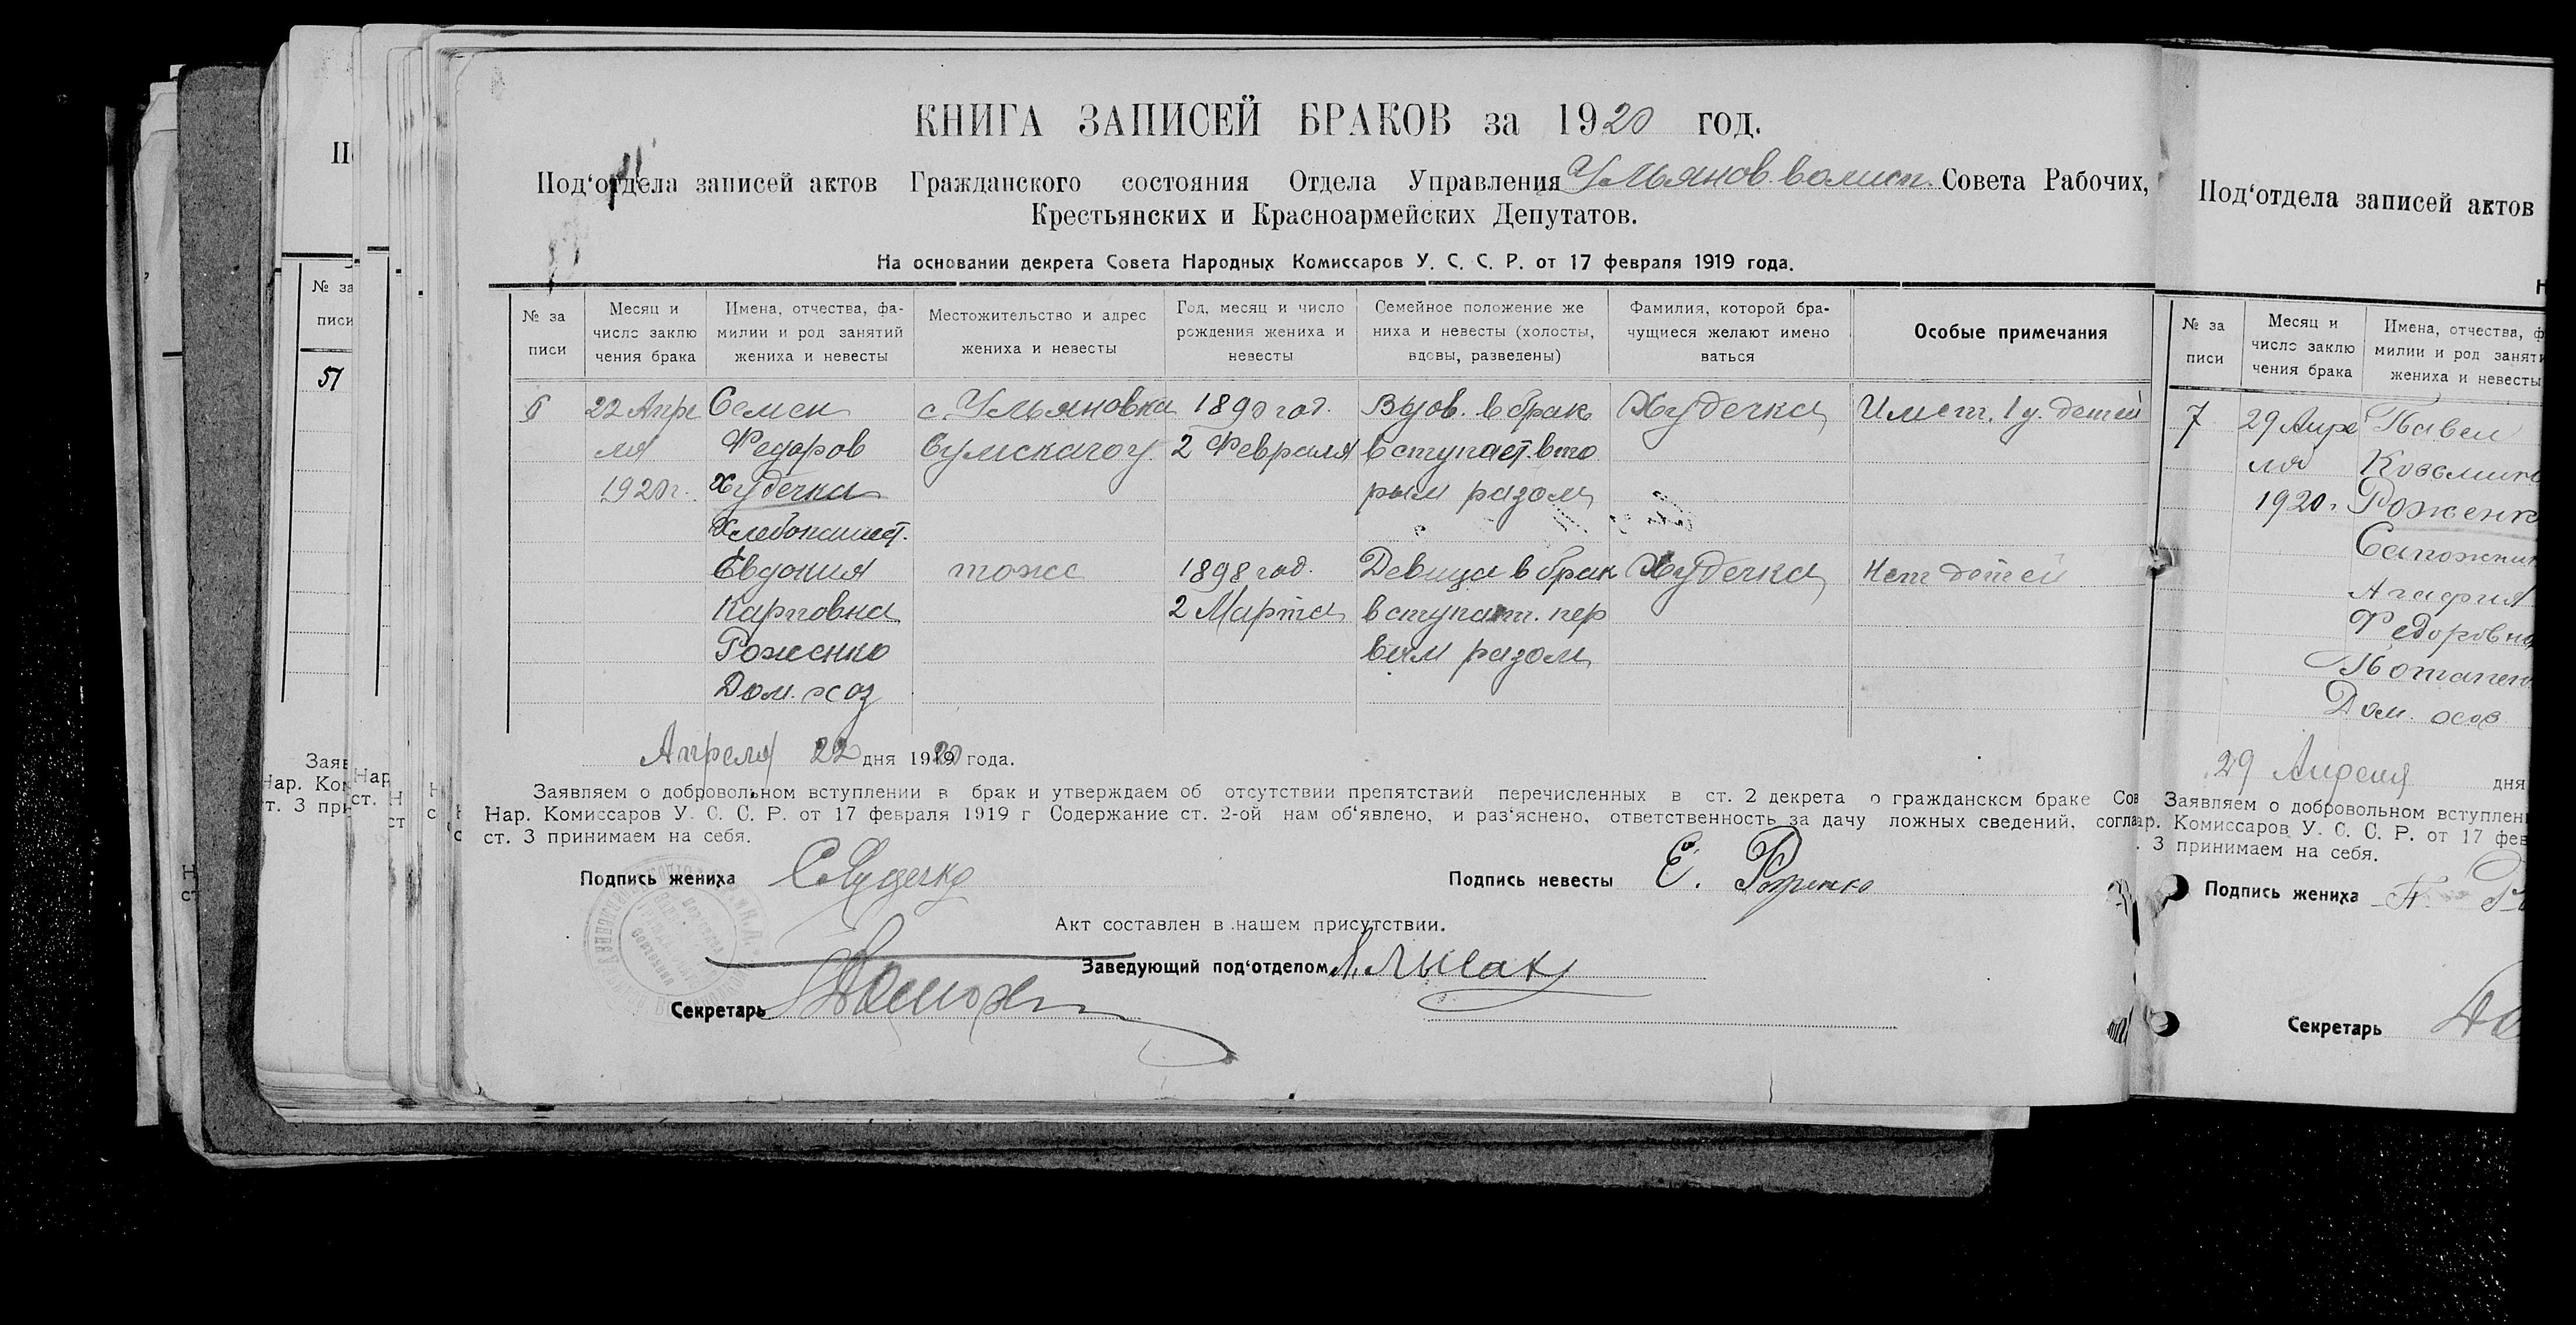 КНИГА ЗАПИСЕЙ БРАКОВ за 1920 год.
Под‘отдела записей актов Гражданского состояния Отдела Управления Ульянов. волисп. Совета Рабочих,
Крестьянских и Красноармейских Депутатов.
На основании декрета Совета Народных Комиссаров У. С. С. Р. от 17 февраля 1919 года.
№ за
писи
Месяц и
число заклю
чения брака
Имена, отчества, фа-
милии и род занятий
жениха и невесты
Местожительство и адрес
жениха и невесты
Год, месяц и число
рождения жениха и
невесты
Семейное положение же
ниха и невесты (холосты,
вдовы, разведены)
Фамилия, которой бра-
чущиеся желают имено
ваться
Особые примечания
6
22 Апре
ля
1920 г.
Семен
Федоров
Худечка
Хлебопашест.
с. Ульяновка
Сумского у.
1890 год.
2 Февраля
Вдов. в брак
вступает. вто
рым разом
Худечка
Имет. 1 у. детей
Евдокия
Карповна
Роженко
Дом. хоз
тоже
1898 год.
2 Марта
Девица в брак
вступает. пер
вым разом
Худечка
Нет детей
Апреля 22 дня 1920 года.
Заявляем о добровольном вступлении в брак и утверждаем об отсутствии препятствий перечисленных в ст. 2 декрета о гражданском браке Сов
Нар. Комиссаров У. С. С. Р. от 17 февраля 1919 г Содержание ст. 2-ой нам об‘явлено, и раз‘яснено, ответственность за дачу ложных сведений, согла
ст. 3 принимаем на себя.
Подпись жениха С Худечко
Подпись невесты Е. Роженко
Акт составлен в нашем присутствии.
Заведующий под‘отделом Лысак
Секретарь
Под‘отдела записей актов
№ за
писи
Месяц и
число заклю
чения брака
Имена, отчества, ф
милии и род заняти
жениха и невесты
7
29 Апре
ля
1920 г.
Павел
Козьмич
Роженк
Сапожник
Агафия
Федоровна
Потапен
Дом. хоз
29 Апреля дня
Заявляем о добровольном вступлен
ар. Комиссаров У. С. С. Р. от 17 фев
. 3 принимаем на себя.
Подпись жениха П. Р
Секретарь
№ за
писи
51
Заяв
Нар. Ко
т. 3 при